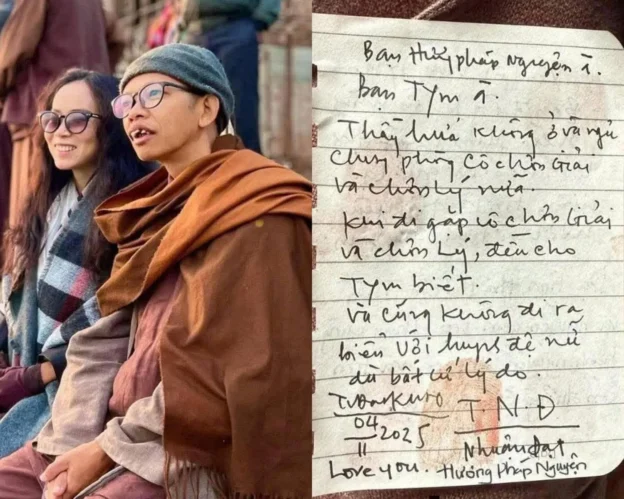 Bạn Hướng pháp Nguyện à.
Bạn Tym à.
Thầy hứa không ở và ngủ
chung phòng cô chơn Giải
và chơn Lý nữa.
Khi đi gặp cô chơn Giải
và chơn Lý, đều cho
Tym biết.
và cũng không đi ra
biển với huynh đệ nữ
dù bất cứ lý do.
T.N.Đ
04
11 2025
Nhuận Đạt
Love you. Hướng Pháp Nguyện